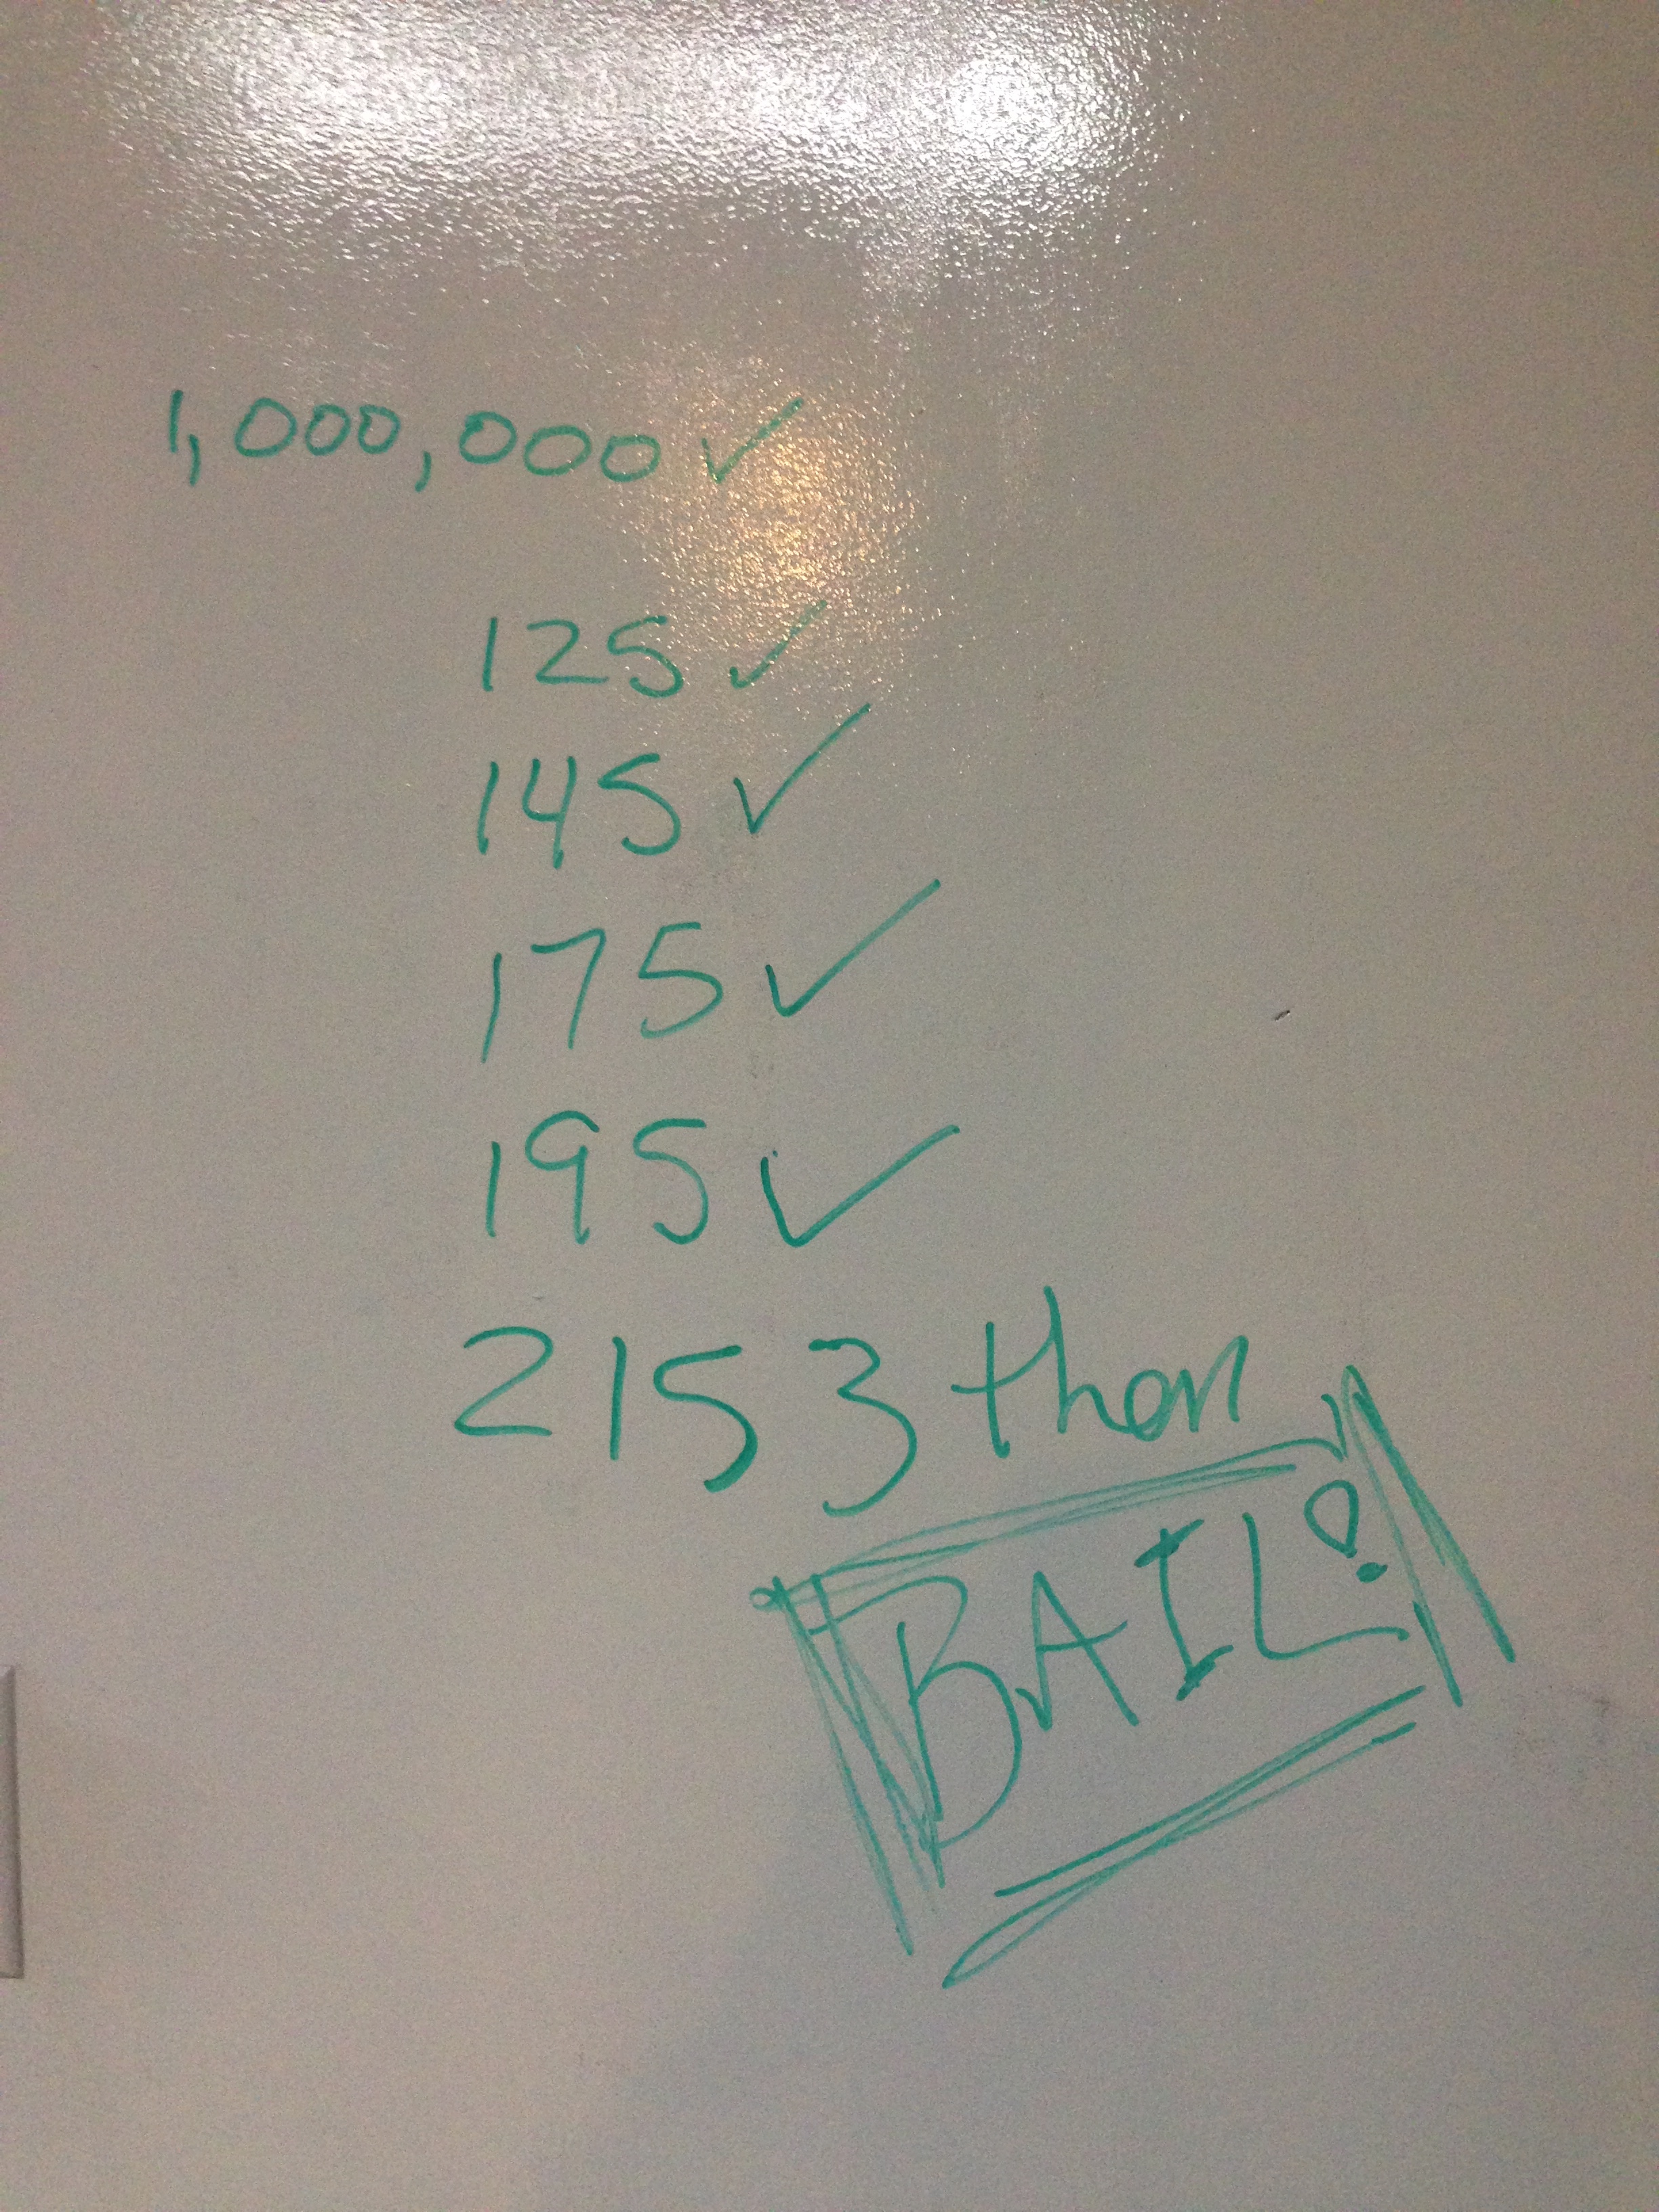 1,000,000 ✓
125 ✓
145 ✓
175 ✓
195 ✓
215 3 then
BAIL!